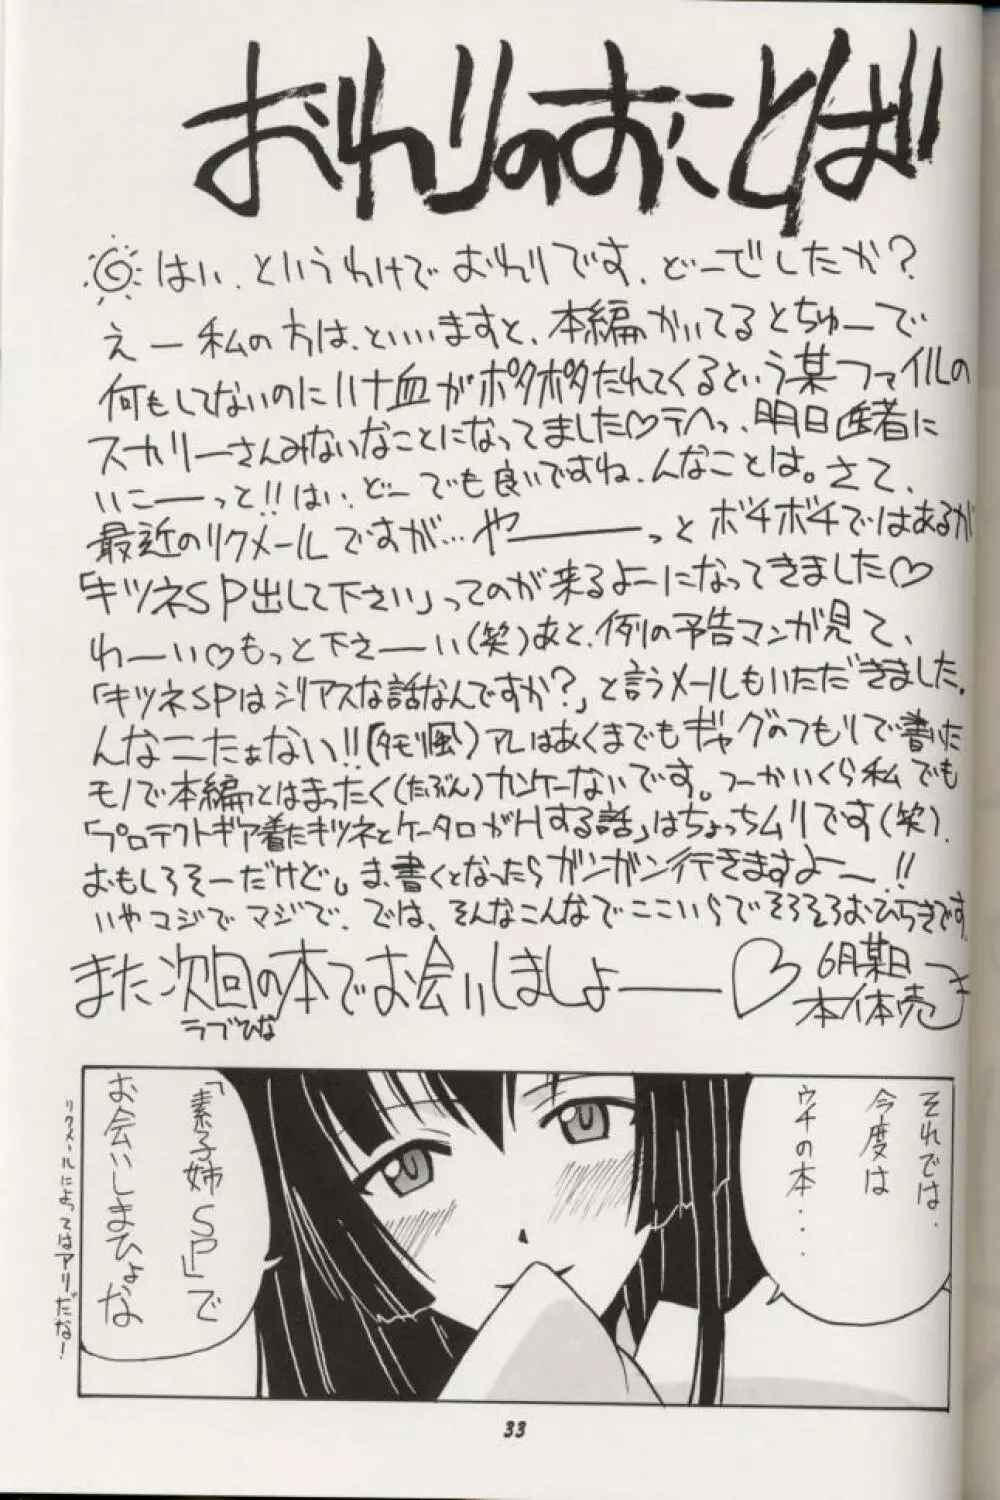 おわりのおことば
はい、というわけでおわりです、どーでしたか?
えー私の方は、といいますと、本編かいてるとちゅーで
何もしてないのにハナ血がポタポタたれてくるという某ファイルの
スカリーさんみないなことになってました♡テヘっ、明日医者に
いこーーっと!!はい、どーでも良いですね、んなことは。さて、
最近のリクメールですが…やーーーっとボチボチではあるが
「キツネSP出して下さい」ってのが来るよーになってきました♡
わーい♡もっと下さーーい(笑)あと、例の予告マンガ見て、
「キツネSPはシリアスな話なんですか?」と言うメールもいただきました。
んなこたぁない!!(タモリ風)アレはあくまでもギャグのつもりで書いた
モノで本編とはまったく(たぶん)カンケーないです。つーかいくら私でも
「プロテクトギア着たキツネとケータロがHする話」はちょっちムリです(笑)、
おもしろそーだけど。ま、書くとなったらガンガン行きますよー!!
いやマジでマジで、では、そんなこんなでここいらでそろそろおひらきです。
また次回の本でお会いしましょーーー♡
ラブひな
6月某日
本体売つき
それでは、
今度は
ウチの本・・・
「素子姉SP」で
お会いしまひょな
リクメールによってはアリだな!
33